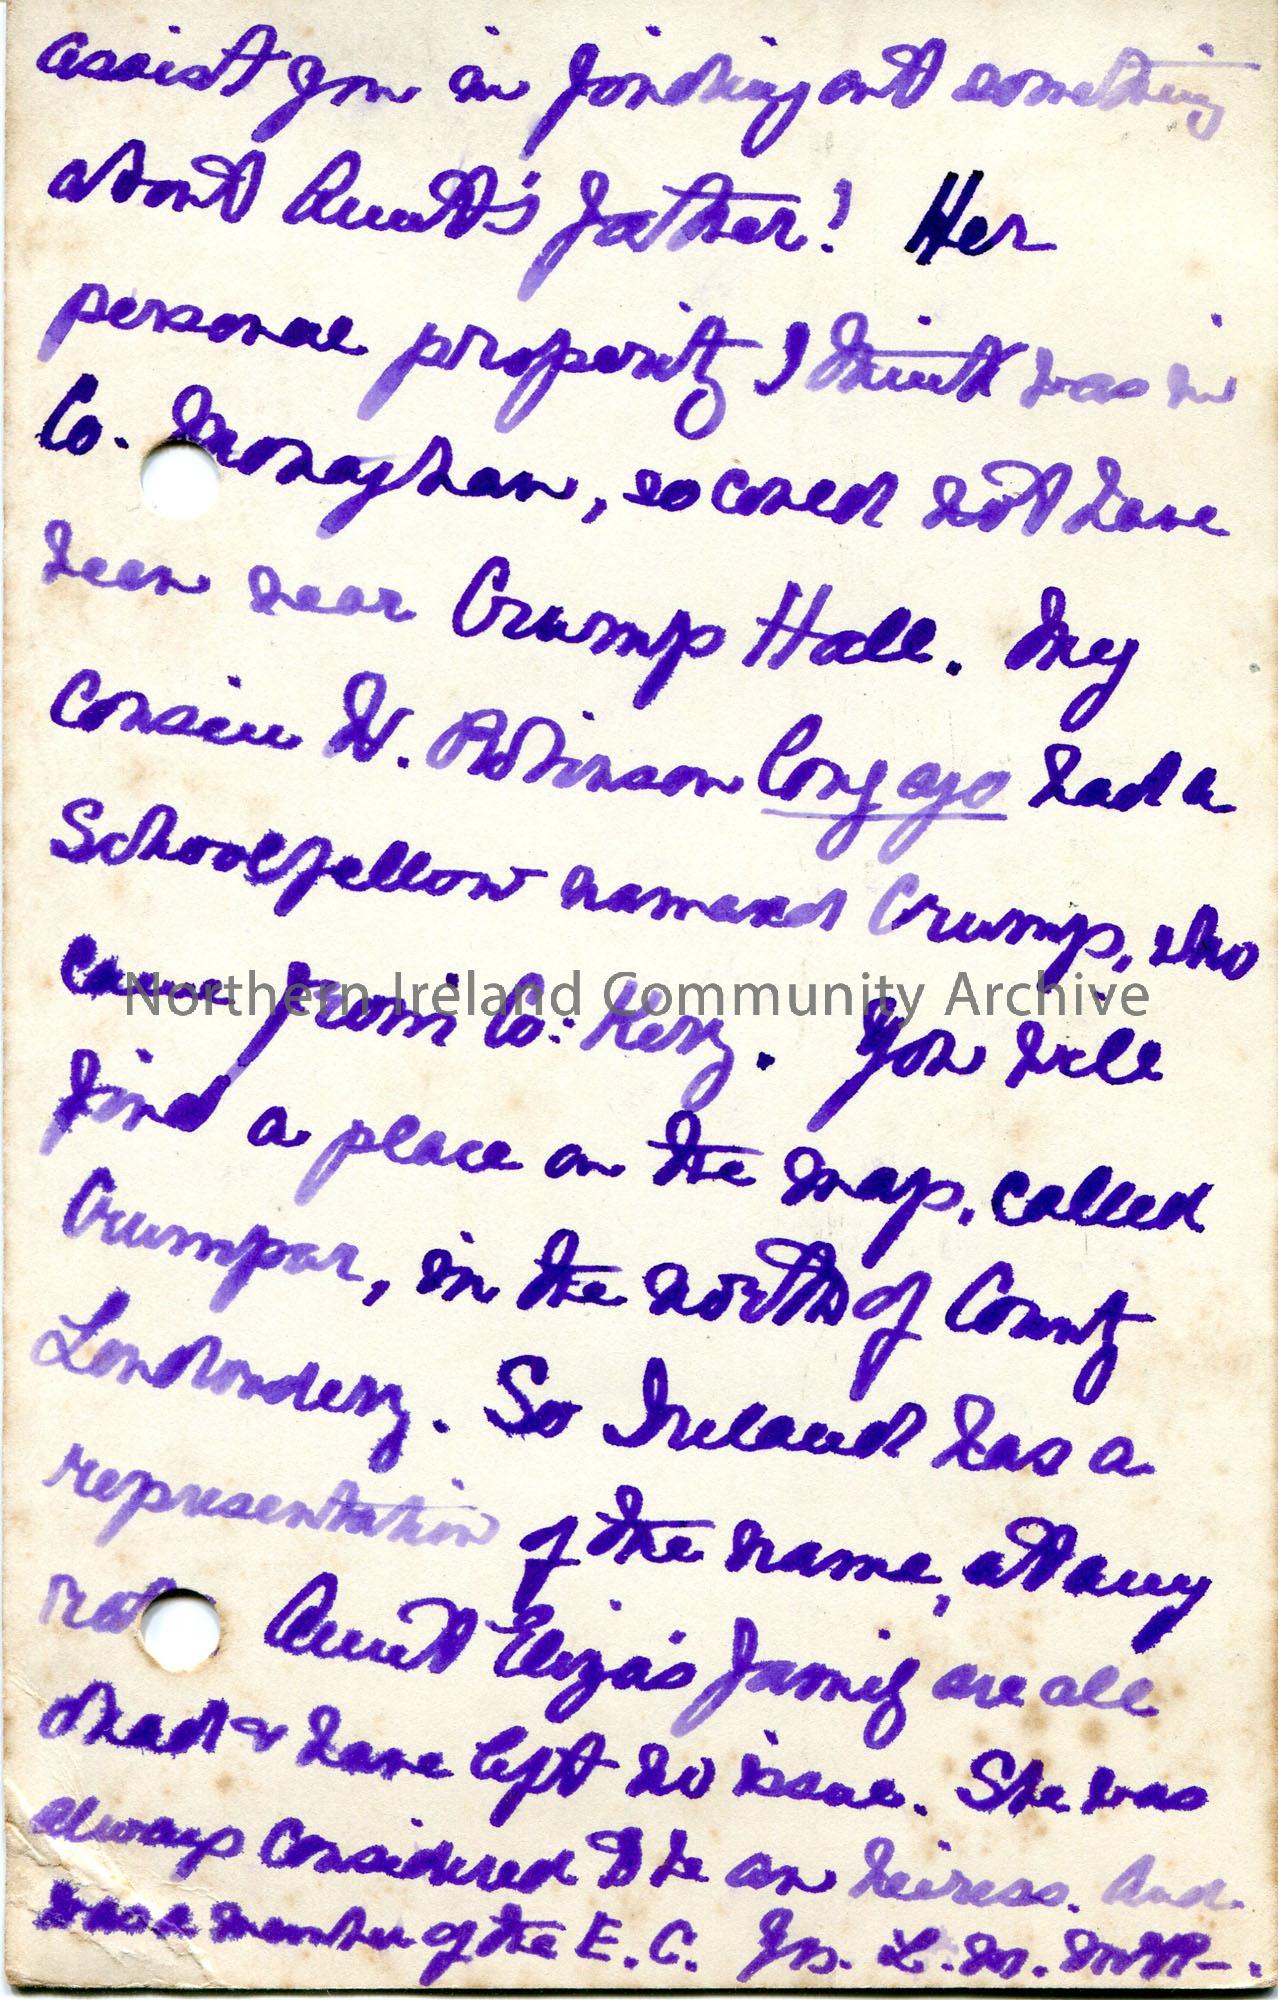 assist you in finding out something
about Aunt's father! Her
personal property I think was in
Co. Monaghan, so could not have
been near Crump Hall. My
cousin W. Robinson long ago had a
Schoolfellow named Crump, who
came from Co: Kerry. You will
find a place on the map, called
Crumpar, in the north of County
Londonderry. So Ireland has a
representation of the name, at any
rate Aunt Eliza's family are all
dead & have left no issue. She was
always considered to be an heiress. And
was a member of the E. C. Yrs. L. M.
Northern Ireland Community Archive